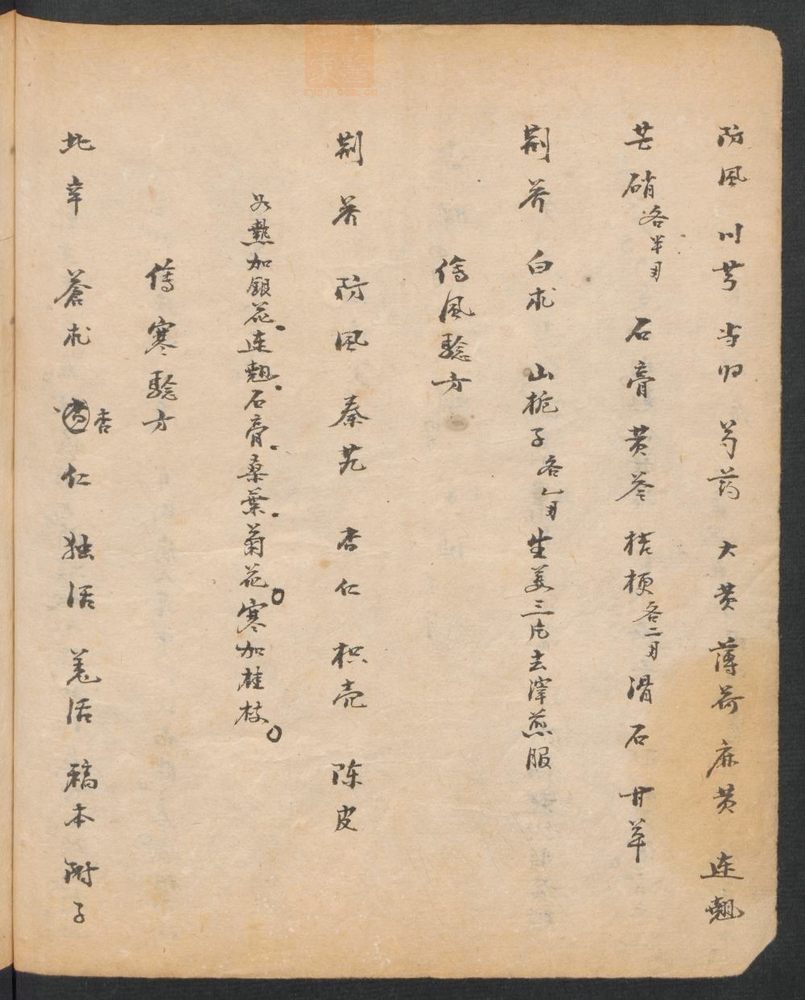 防風 川芎 当归 芍药 大黄 薄荷 麻黄 连翘
芒硝各半月 石膏 黄芩 桔梗各二月 滑石 甘草
荆芥 白朮 山栀子各一月 生姜三片去滓煎服
傷風騐方
荆芥 防風 秦艽 杏仁 枳壳 陈皮
熱加銀花连翘石膏桑葉菊花。寒加桂枝。
傷寒騐方
北辛 蒼朮 杏仁 独活 羌活 稿本 附子